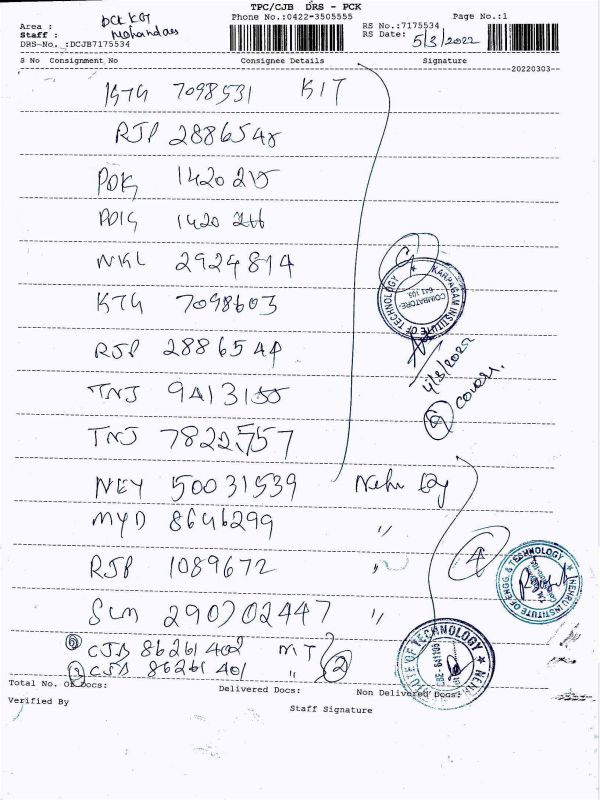 TPC/CJB DRS - PCK
Phone No.:0422-3505555 Page No.:1
Area : PCK KG
Staff : Mohandas
DRS-No. :DCJB7175534
RS No.:7175534
RS Date: 5/3/2022
S No Consignment No Consignee Details Signature
20220303
KTG 7098531 KIT
RJP 2886548
PDK 1420215
1420 216
NKL 2924814
KTG 7098603
RJP 2886544
TNJ 9413155
TNJ 7822557
NEY 50031539 Nehru
MYD 8646299 "
RJP 1089672 "
SLM 290702447 "
CJB 86261402 MT
CJB 86261401 " 2
KARPAGAM INSTITUTE OF TECHNOLOGY
COIMBATORE-
641 105.
4/3/2022
6 cover.
4
NEHRU INSTITUTE OF ENGG. & TECHNOLOGY
INSTITUTE OF TECHNOLOGY
CBE - 641105
Total No. Of Docs: Delivered Docs: Non Delivered Docs:
Verified By
Staff Signature